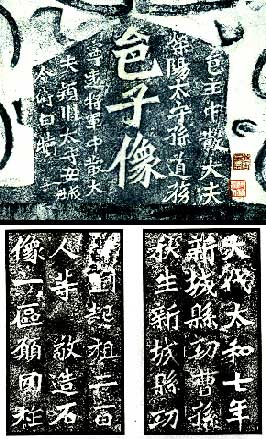 邑主中散大夫
滎陽太守孫道務
邑子像
寧遠將軍中散大
夫潁川太守安城
令衛白犢
大代太和七年
新城縣功曹孫
秋生新城縣功
劉起祖二百
人等敬造石
像一區願國祚